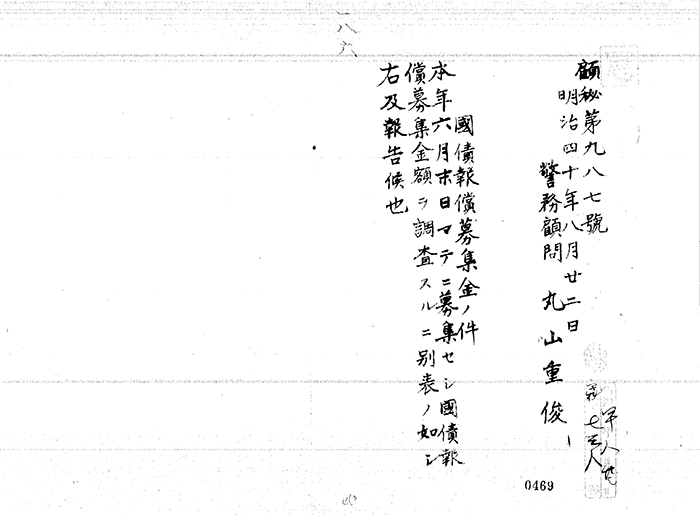 顧秘第九八七號
明治四十年八月廿二日
警務顧問 丸山重俊
國債報償募集金ノ件
本年六月末日マテニ募集セシ國債報
償募集金額ヲ調査スルニ別表ノ如シ
右及報告候也
一八六
0469